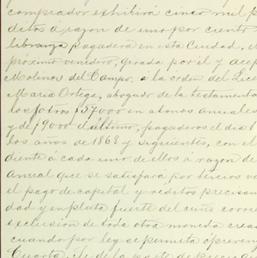 comprador exhibirá cinco mil p
ditos á razon de uno por ciento
libranza pagadera en esta Ciudad, el
próximo venidero, girada por él y acep
Molinos del Campo, á la orden del Lice
Maria Ortega, abogado de la testamenta
los otros $37000 en abonos anuales
y de $9000 el último, pagaderos el dia 1
los años de 1868 y siguientes, con el
diente á cada uno de ellos á razon de
anual que se satisfará por tercios ve
el pago de capital y réditos precisam
dad y en plata fuerte del cuño corrie
exclusion de toda otra moneda crea
cuando por ley se permita ó preven
Cuarta